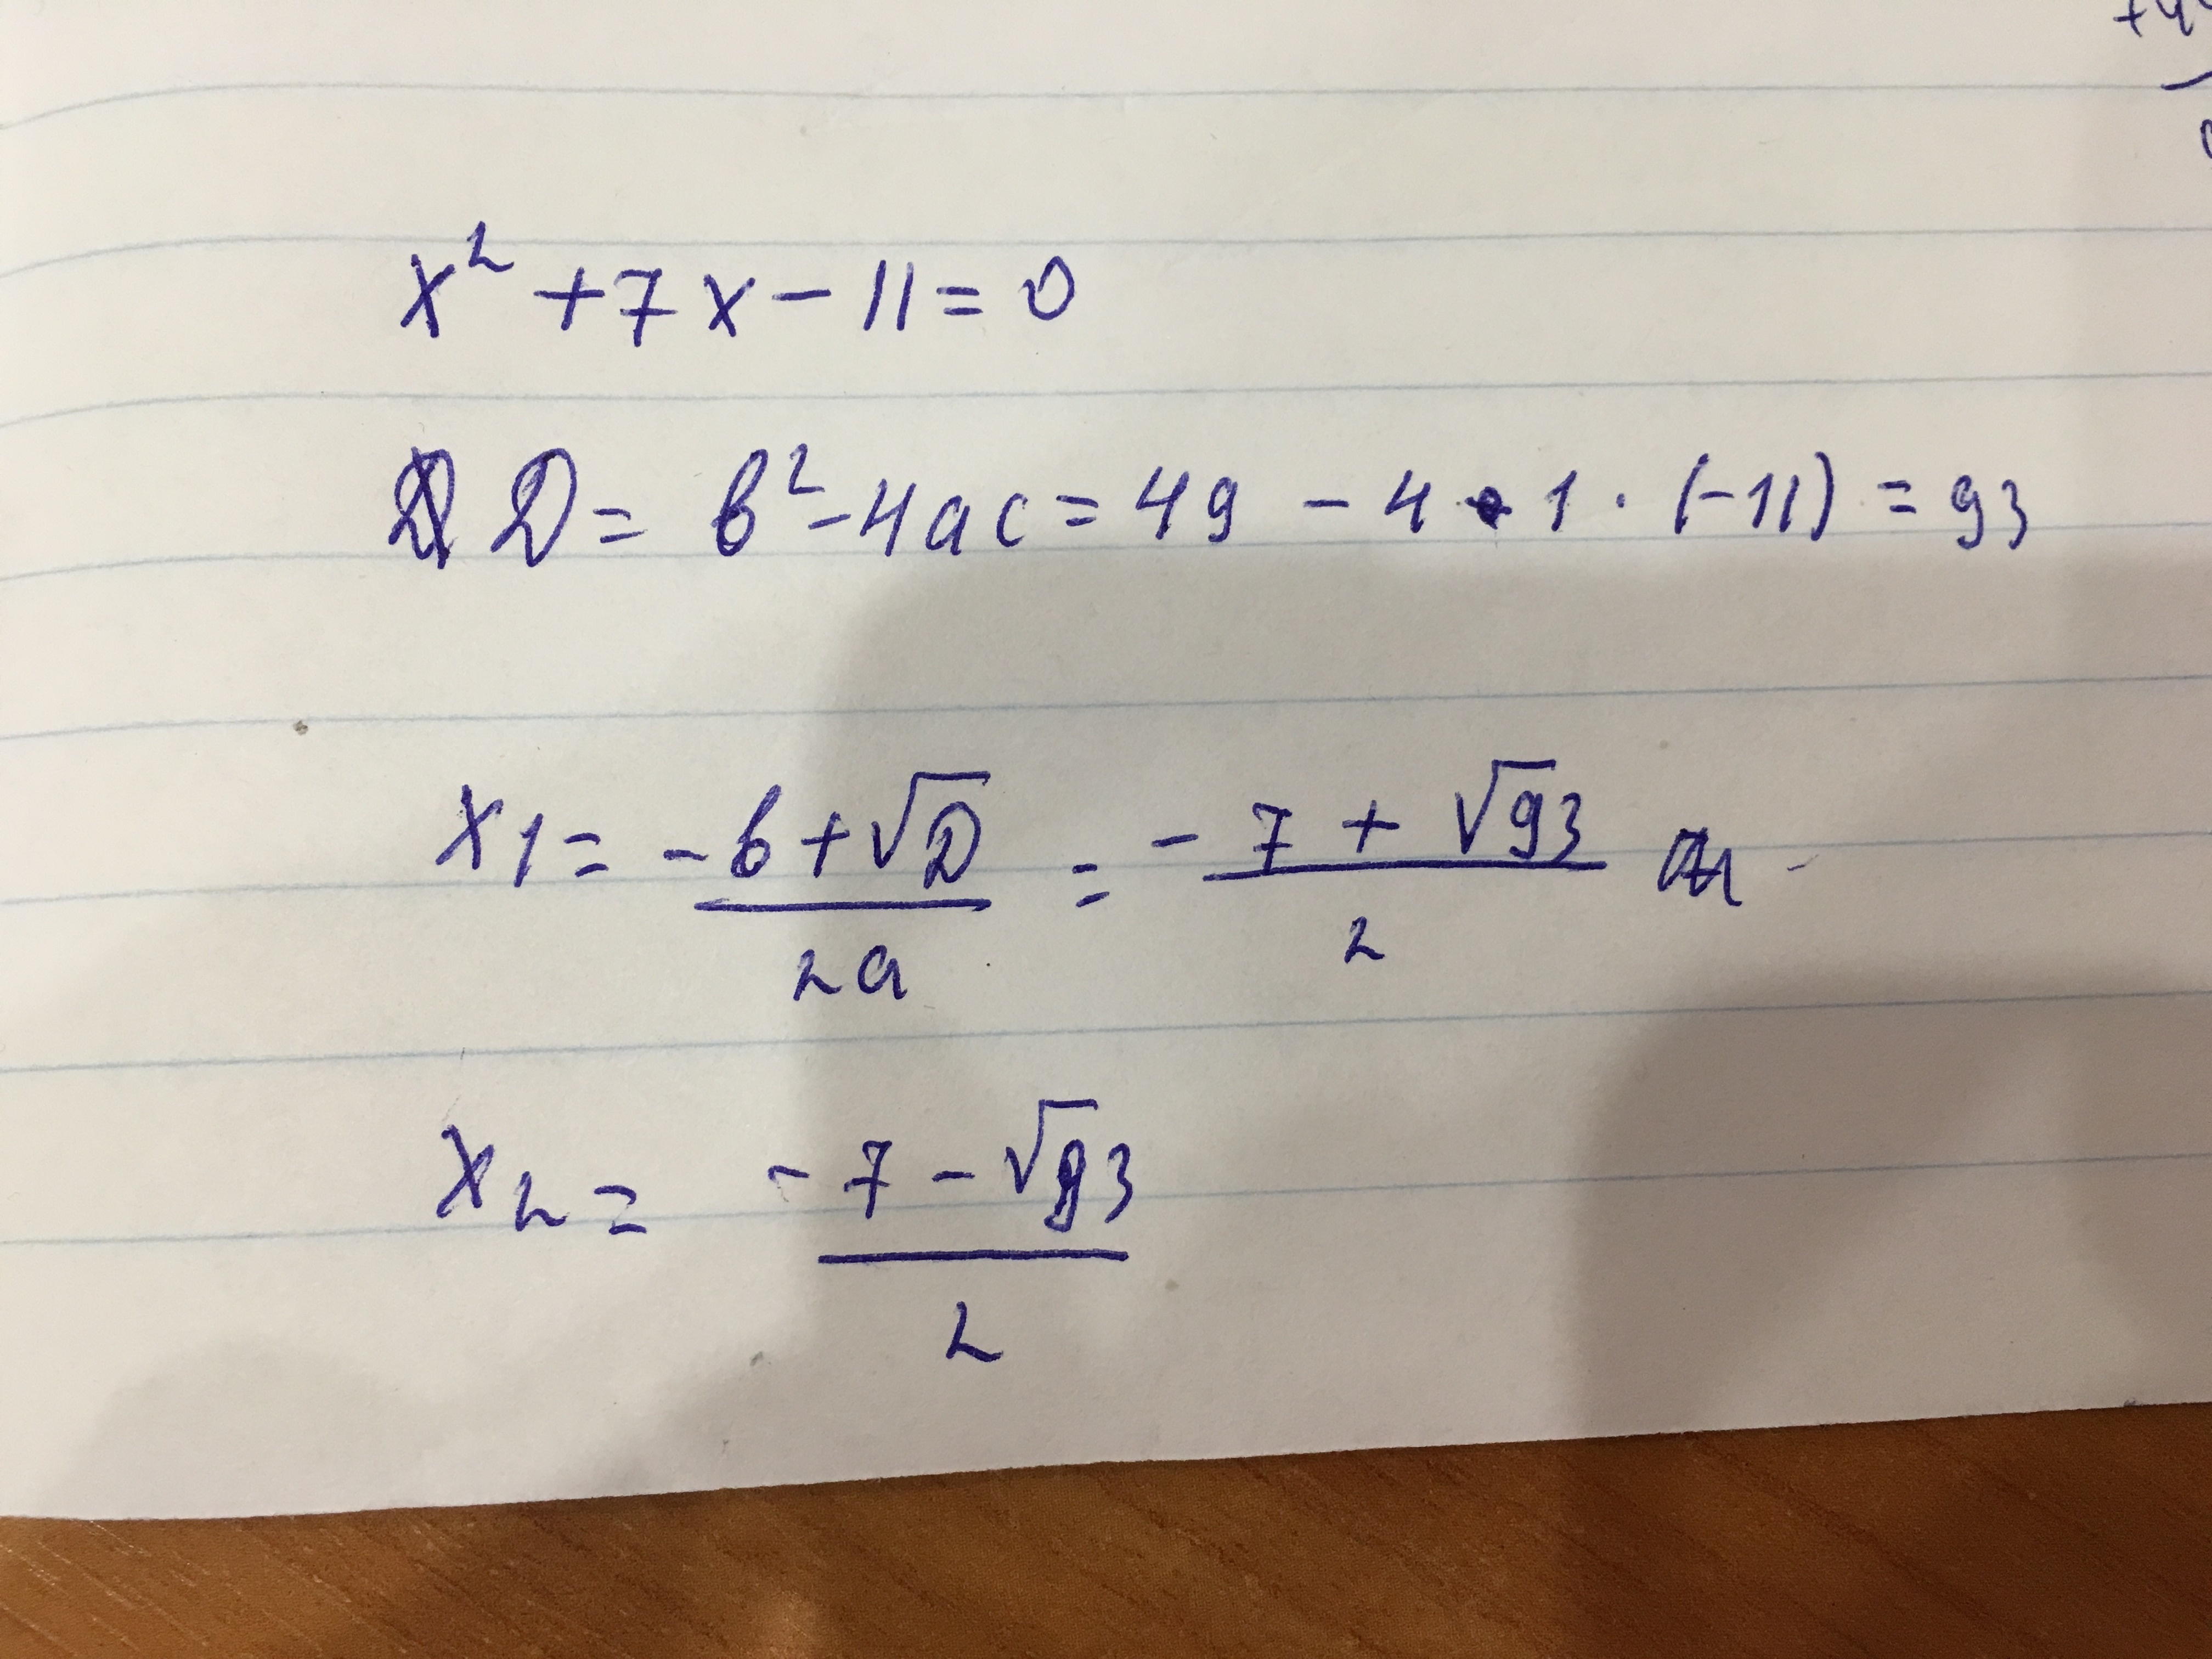 +4
x² + 7x - 11 = 0
D = b² - 4ac = 49 - 4 · 1 · (-11) = 93
x1 = -b + √D / 2a = -7 + √93 / 2
x2 = -7 - √93 / 2